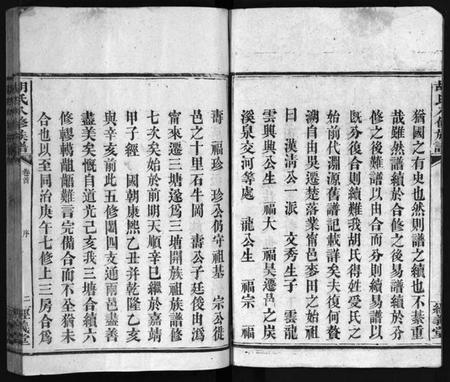 猶國之有史也然則譜之續也不綦重
哉雖然譜續於合修之後易譜續於分
修之後難譜以由合而分則續易譜以
既分後合則續難我胡氏得姓受氏之
始前代淵源舊譜記載詳矣夫復何贅
湖自由吳遷楚落業甯邑麥田之始祖
曰漢清公一派 文秀生子 雲龍
雲興興公生 福大 福昊遷邑之炭
溪泉交河等處 龍公生 福宗 福
壽 福珍 珍公仍守福基 宗公徙
邑之十里石牛岡 壽公子廷俊由溈
甯來遷三塘遂為三塘開族祖族譜修
七次矣始於前明天順辛巳繼於嘉靖
甲子經 國朝康熙乙丑并乾隆乙亥
與辛亥前此五修闔四支通兩邑盡善
盡美矣慨自道光己亥我三塘合續六
修轇轕齟齬難言完備合而不坌猶未
合也以至同治庚午七修上三房合為
胡氏八修族譜
卷首
序
二
經義堂